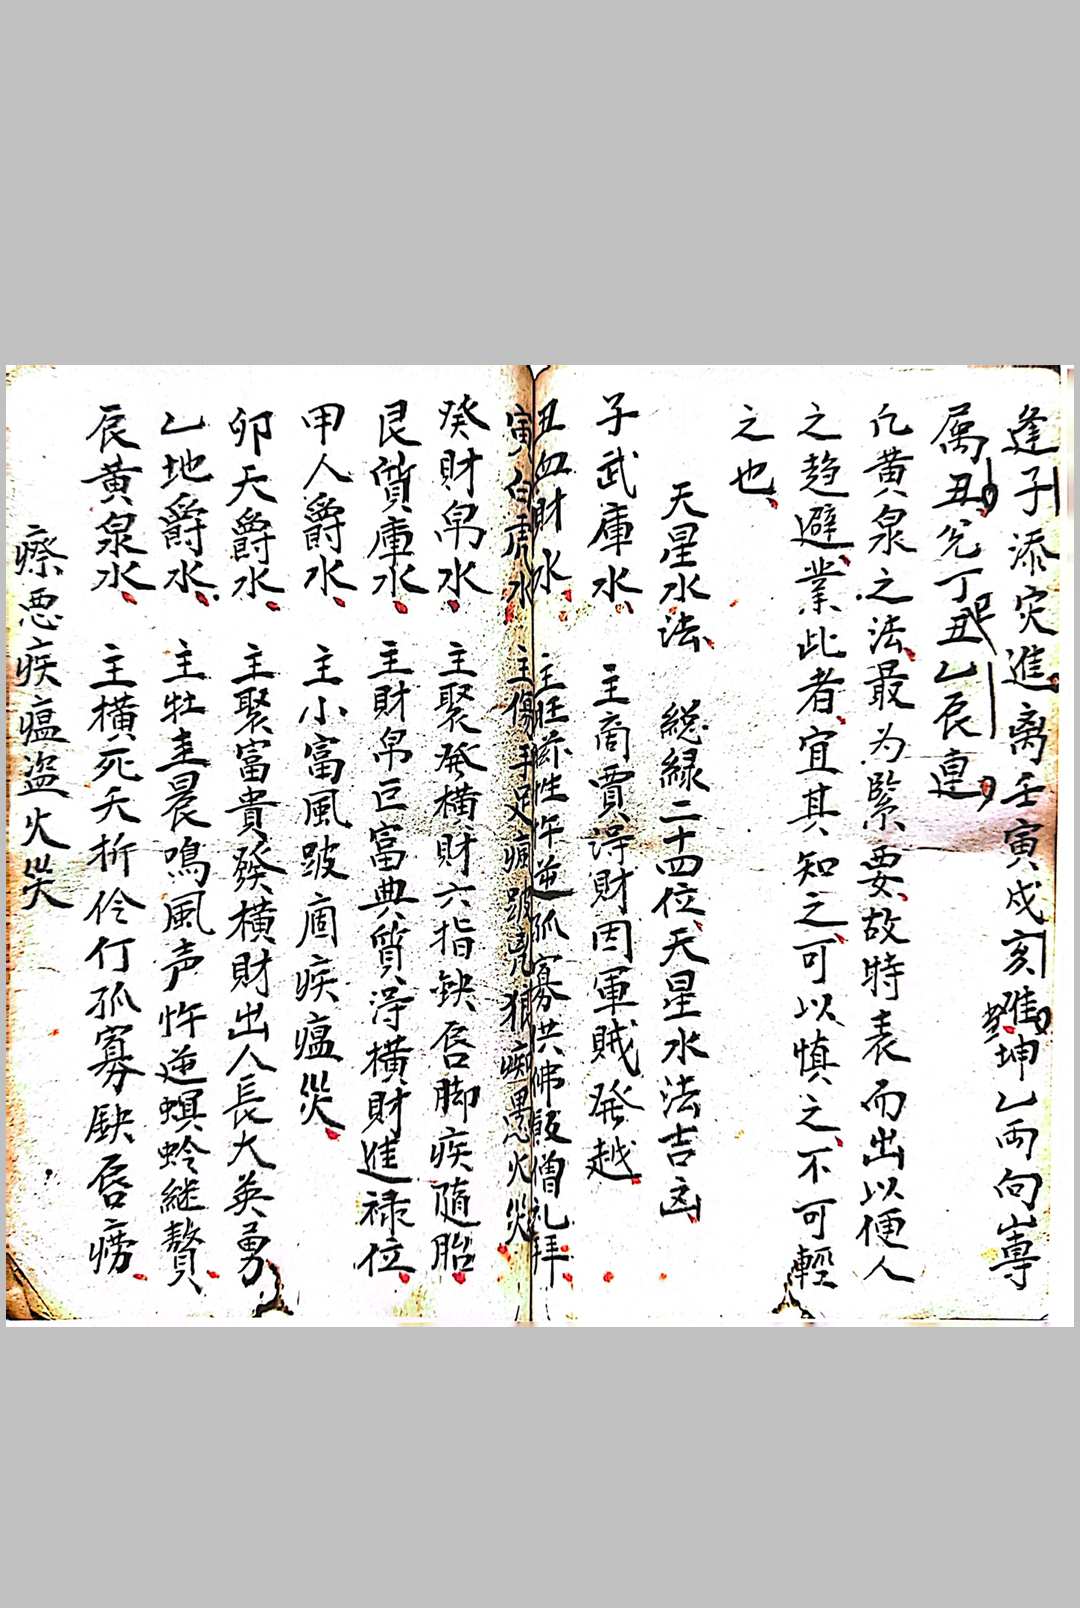 逢子添灾進离壬寅戍亥難坤乙両向嵪
属丑兊丁丑巳乙辰
凢黄泉之法最为緊要故時表而出以便人
之趋避業此者宜其知之可以慎之不可輕
之也
天星水法 総緑二十四位天星水法吉凶
子武庫水 主商賈淂財因軍賊発越
丑血財水 主旺 性忤逆孤寡供佛殿僧礼拜
寅白虎水 主傷手足瘋跛虎狼痴愚火災
癸財帛水 主聚発横財六指缺唇脚疾随胎
艮質庫水 主財帛巨富典質淂横財進禄位
甲人爵水 主小富風跛痼疾瘟災
卯天爵水 主聚富貴發横財出人長大英勇
乙地爵水 主牝晨鳴風声忤逆螟蛉継贅
辰黄泉水 主横死夭折伶仃孤寡缺唇痨
瘵恶疾瘟盗火災